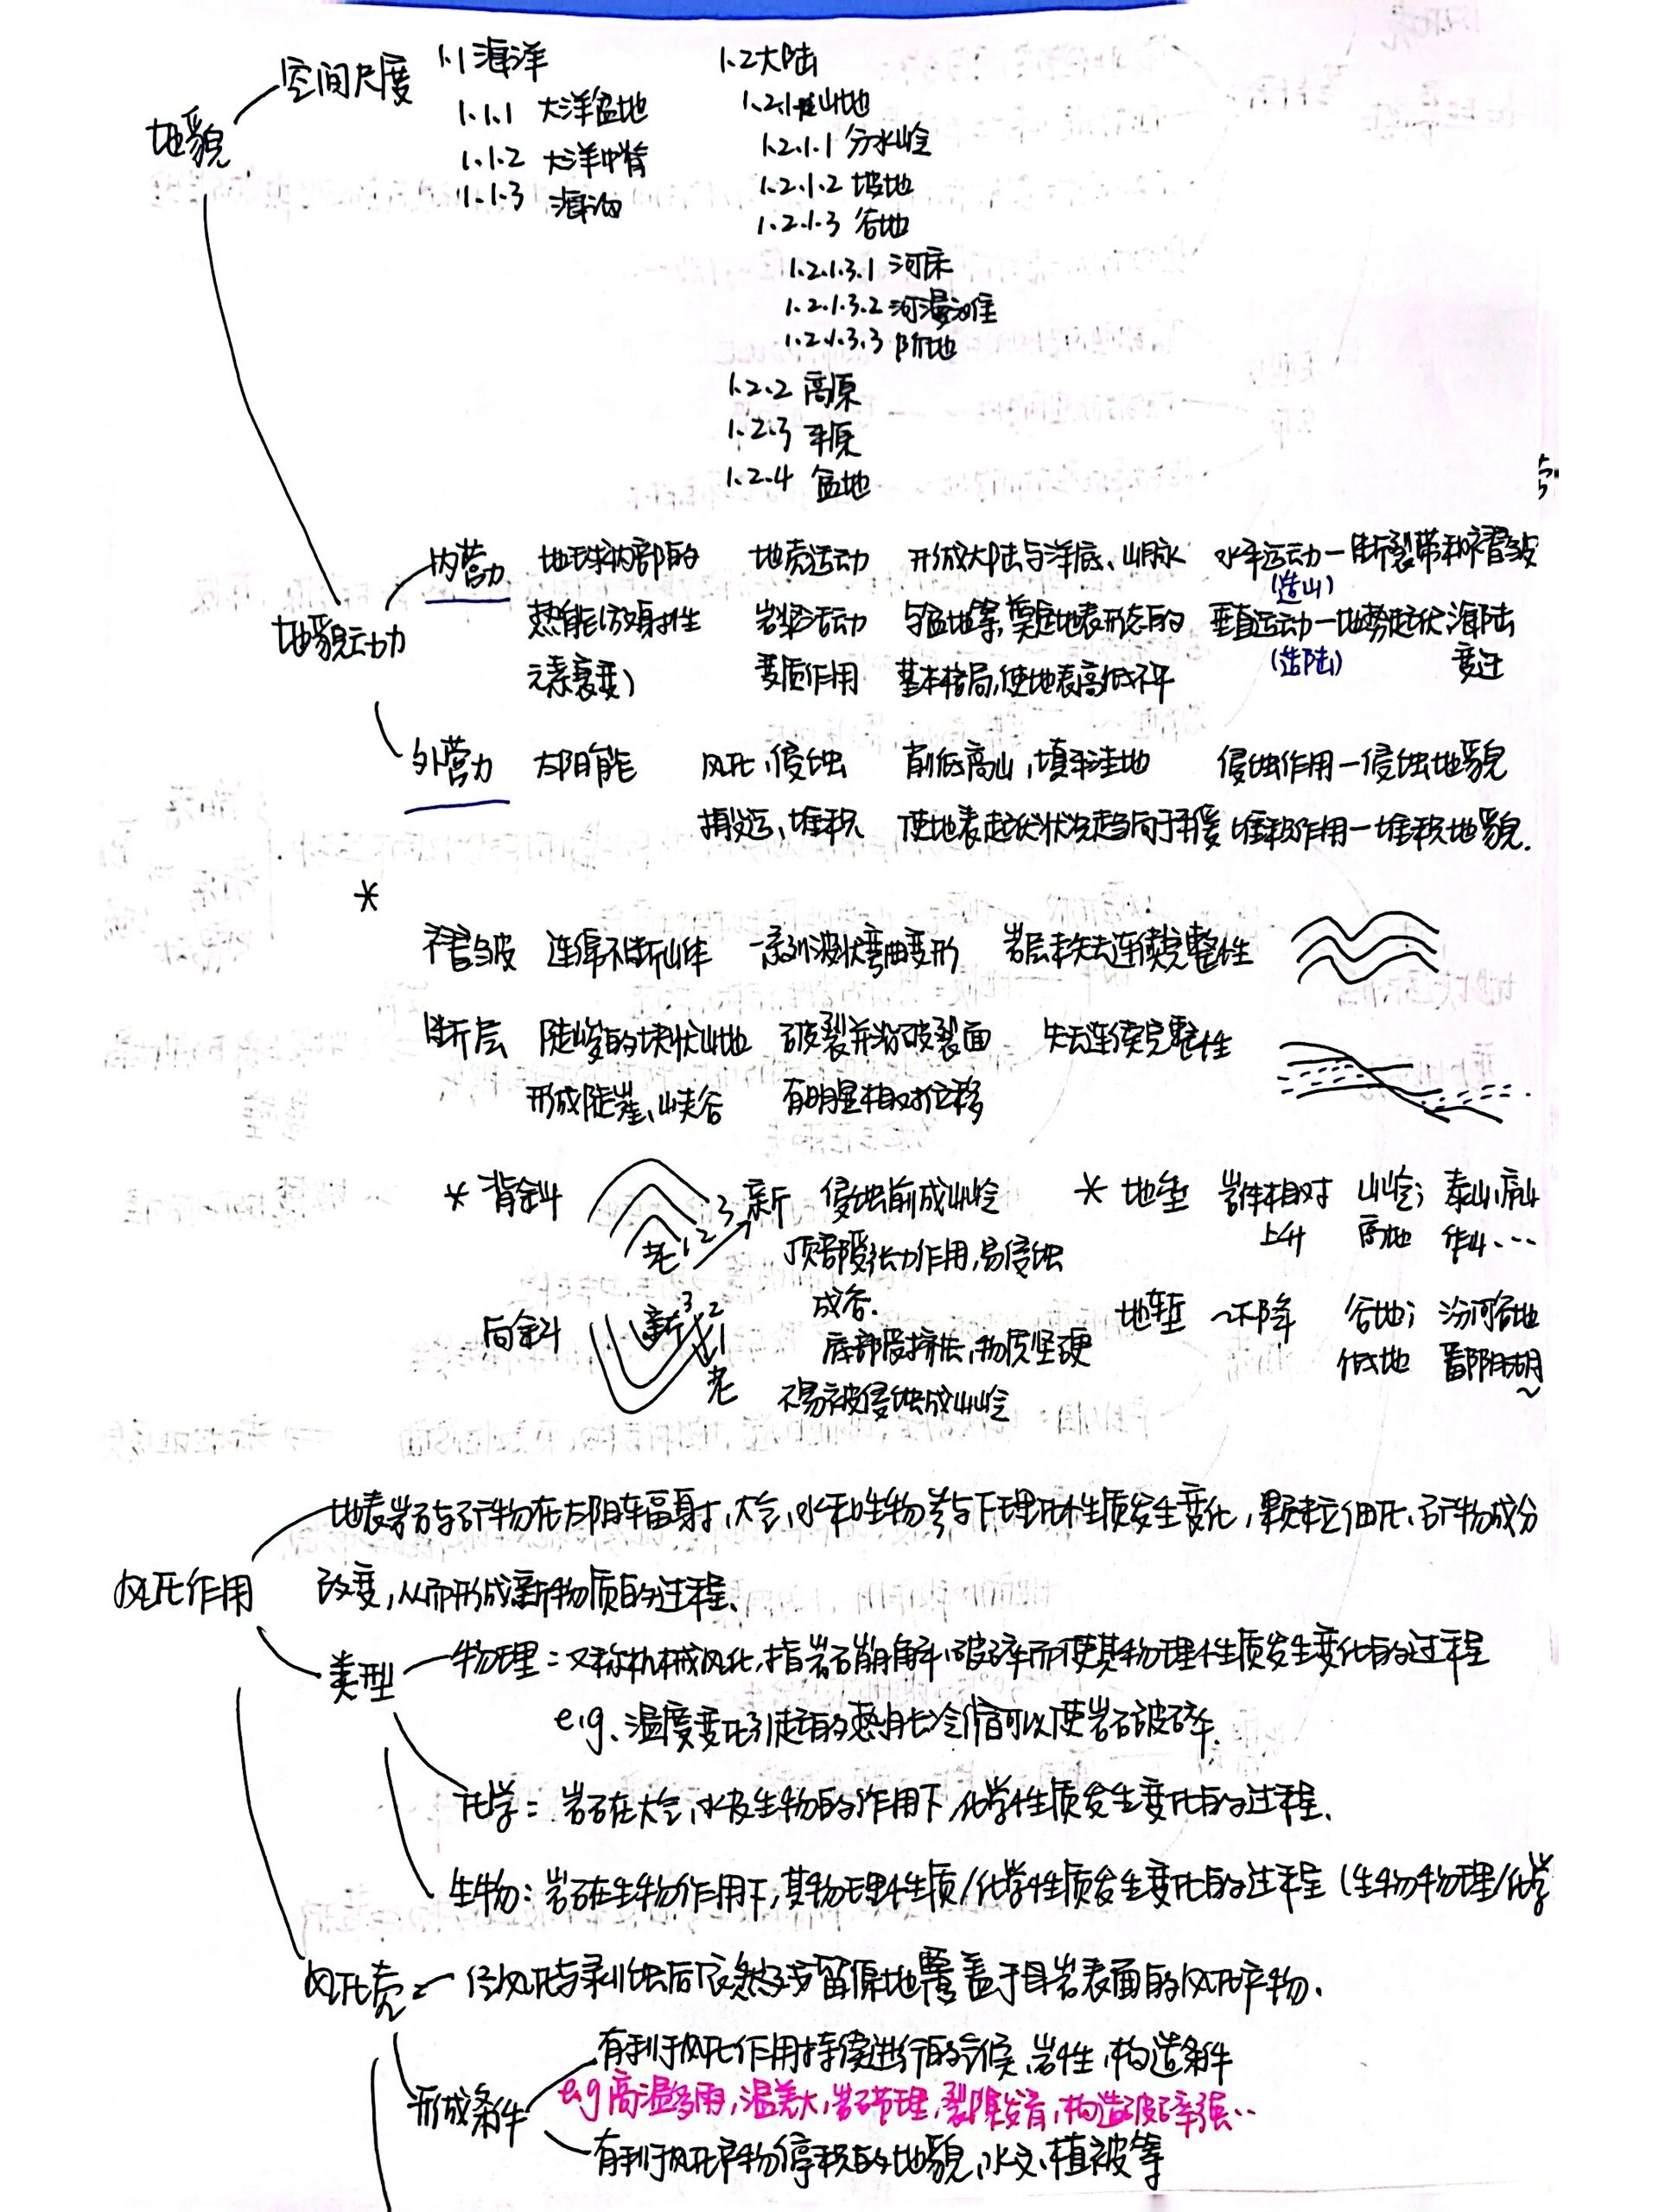 地貌
空间尺度
1.1 海洋
1.1.1 大洋盆地
1.1.2 大洋中脊
1.1.3 海沟
1.2 大陆
1.2.1 山地
1.2.1.1 分水岭
1.2.1.2 坡地
1.2.1.3 谷地
1.2.1.3.1 河床
1.2.1.3.2 河漫滩
1.2.1.3.3 阶地
1.2.2 高原
1.2.3 平原
1.2.4 盆地
地貌动力
内营力 地球内部的 地壳运动 形成大陆与洋底、山脉 水平运动—断裂带和褶皱
(造山)
热能(放射性 岩浆活动 与盆地等,奠定地表形态的 垂直运动—地势起伏海陆
元素衰变) 变质作用 基本格局,使地表高低不平 (造陆) 变迁
外营力 太阳能 风化、侵蚀 削低高山,填平洼地 侵蚀作用—侵蚀地貌
搬运、堆积 使地表起伏状况趋向于平缓 堆积作用—堆积地貌.
*
褶皱 连绵不断山体 一系列波状弯曲变形 岩层未失去连续完整性
断层 陡峻的块状山地 破裂并沿破裂面 失去连续完整性
形成陡崖、峡谷 有明显相对位移
* 背斜 老 1 2 3 新 侵蚀前成山岭 * 地垒 岩体相对 山岭; 泰山、庐山
顶部受张力作用,易侵蚀 上升 高地 华山、…
成谷.
向斜 新 3 2 1 老 底部受挤压,物质坚硬 地堑 ~下降 谷地; 汾河谷地
不易被侵蚀成山岭 低地 鄱阳湖
风化作用
地表岩石与矿物在太阳辐射、大气、水和生物参与下理化性质发生变化,颗粒细化、矿物成分
改变,从而形成新物质的过程、
类型
物理:又称机械风化,指岩石崩解、破碎而使其物理性质发生变化的过程
e.g、温度变化引起的热胀冷缩可以使岩石破碎.
化学:岩石在大气、水及生物的作用下,化学性质发生变化的过程.
生物:岩石在生物作用下,其物理性质/化学性质发生变化的过程(生物物理/化学
风化壳 — 经风化与剥蚀后依然残留原地覆盖于母岩表面的风化产物.
形成条件
有利于风化作用持续进行的气候、岩性、构造条件
e.g 高温多雨,温差大,岩石节理,裂隙发育,构造破碎强…
有利于风化产物停积的地貌、水文、植被等